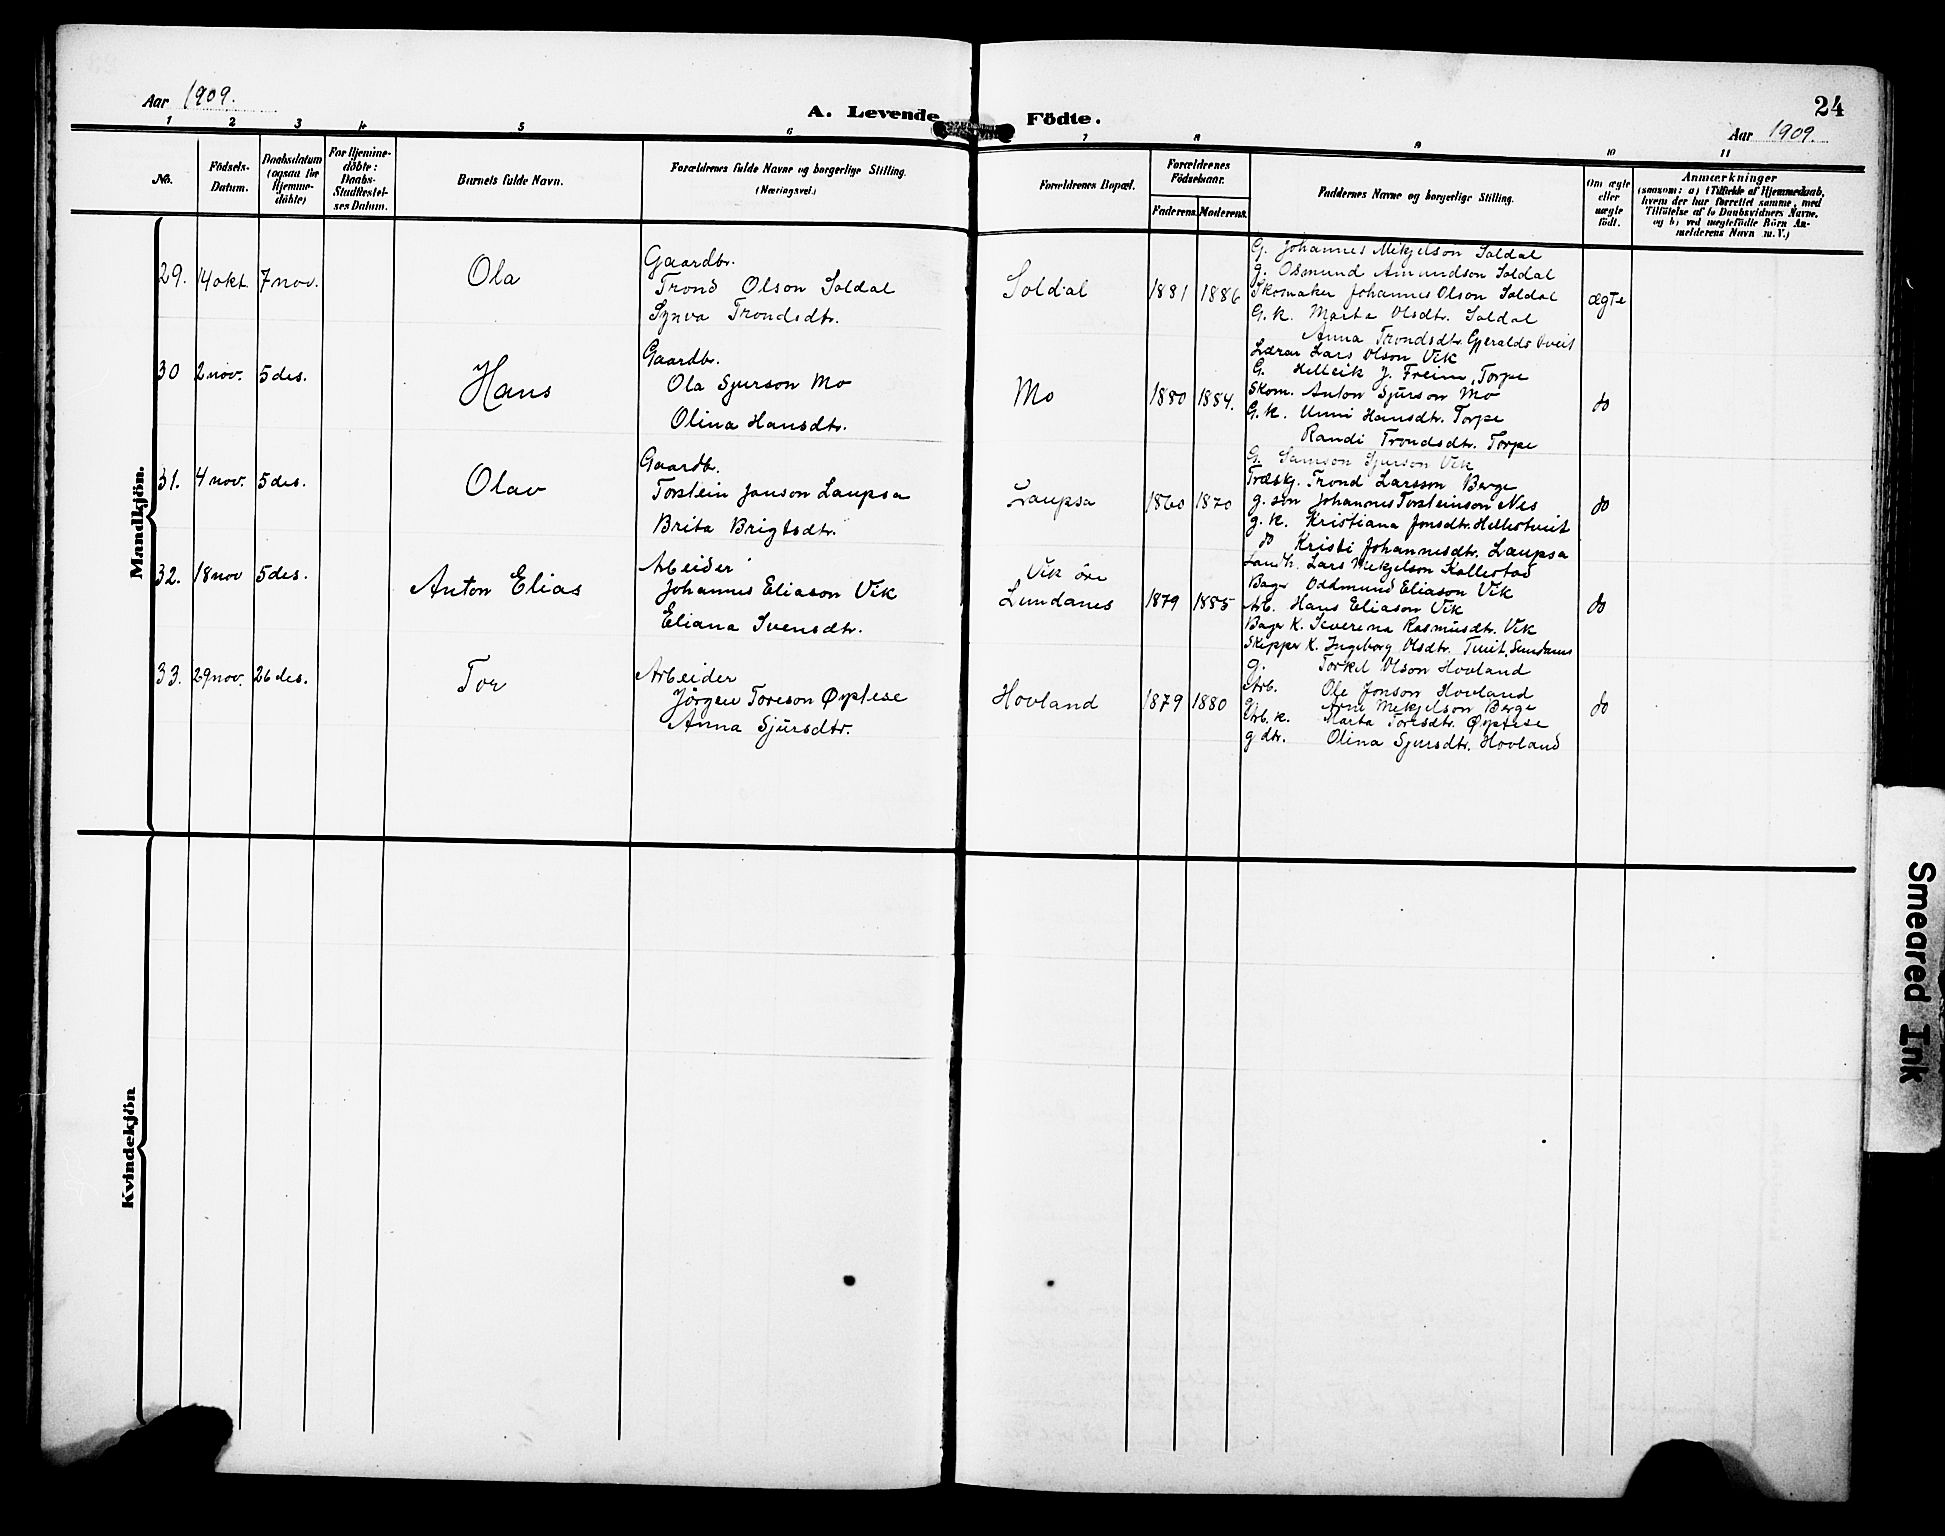 Aar 1909.
A. Levende Födte.
24
Aar 1909.
1 2 3 4 5 6 7 8 9 10 11
No.
Födsels-
Datum.
Daabsdatum
(ogsaa for
Hjemme-
döbte)
For Hjemme-
döbte:
Daabs-
Stadfæstel-
ses Datum.
Barnets fulde Navn.
Forældrenes fulde Navne og borgerlige Stilling.
(Næringsvei.)
Forældrenes Bopæl.
Forældrenes
Födselsaar.
Faderens. Moderens.
Faddernes Navne og borgerlige Stilling.
Om ægte
eller
uægte
födt.
Anmærkninger
(saasom: a) i Tilfælde af Hjemmedaab,
hvem der har forrettet samme, med
Tilföielse af to Daabsvidners Navne,
og b) ved uægtefödte Börn An-
melderens Navn m. V.)
Mandkjön.
29. 14 okt. 7 nov.
Ola
Gaardbr.
Trond Olson Soldal
Synva Trondsdtr.
Soldal
1881 1886
G. Johannes Mikjelson Soldal
g. Osmund Amundson Soldal
Skomaker Johannes Olson Soldal
G. K. Marta Olsdtr. Soldal
Anna Trondsdtr. Gjeraldstveit
ægte
30 2 nov. 5 des.
Hans
Gaardbr.
Ola Sjurson Mo
Olina Hansdtr.
Mo
1880 1884.
Lærar Lars Olson Vik
G. Helleik J. Freim, Torpe
Skom. Anton Sjurson Mo
G. K. Unni Hansdtr. Torpe
Randi Trondsdtr. Torpe
do
31. 4 nov. 5 des.
Olav
Gaardbr.
Torstein Janson Laupsa
Brita Brigtsdtr.
Laupsa
1860 1870
G. Samson Sjurson Vik
Træskj. Trond Larsson Berge
g. søn Johannes Torsteinson Nes
g. K. Kristiana Jonsdtr. Hellestveit
do Kristi Johannesdtr. Laupsa
do
32. 18 nov 5 des.
Anton Elias
Arbeider
Johannes Eliason Vik
Eliana Svensdtr.
Vik öre
Lundanes
1879 1885
Landh. Lars Mikjelson Kallestad
Bager Oddmund Eliason Vik
Arb. Hans Eliason Vik
Bager K. Severina Rasmusdtr. Vik
Skipper K. Ingeborg Olsdtr. Tveit, Sundanes
do
33. 29 nov. 26 des.
Tor
Arbeider
Jörgen Toreson Øystese
Anna Sjursdtr.
Hovland
1879 1880
g. Torkel Olson Hovland
Arb. Ole Jonson Hovland
g. Arne Mikjelson Berge
Arb. k. Marta Toresdtr. Øystese
g dtr. Olina Sjursdtr. Hovland
do
Kvindekjön
Smeared Ink